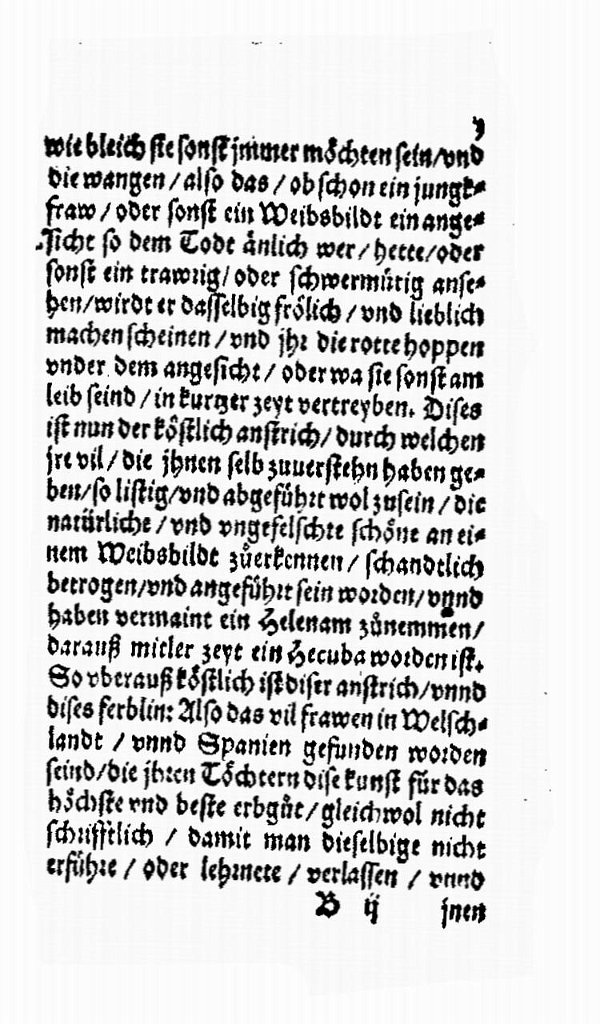 wie bleich sie sonst jmmer möchten sein/vnd
die wangen/also das/ob schon ein jungk-
fraw/oder sonst ein Weibsbildt ein ange-
sicht so dem Todt änlich wer/hette/oder
sonst ein trawrig/oder schwermütig anse-
hen/wirdt er dasselbig frölich/vnd lieblich
machen scheinen/vnd jhr die rotte hoppen
vnder dem angesicht/oder wa sie sonst am
leib seind/in kurtzer zeyt vertreyben. Dises
ist nun der köstlich anstrich/durch welchen
jre vil/die jhnen selb zuuerstehn haben ge-
ben/so listig/vnd abgeführt wol zusein/die
natürliche/vnd vngefelschte schöne an ei-
nem Weibsbildt zůerkennen/schandtlich
betrogen/vnd angeführt sein worden/vnnd
haben vermaint ein Helenam zůnemmen/
darauß mitler zeyt ein Hecuba worden ist.
So vberauß köstlich ist diser anstrich/vnnd
dises ferblin: Also das vil frawen in Welsch-
landt/vnnd Spanien gefunden worden
seind/die jhren Töchtern dise kunst für das
höchste vnd beste erbgůt/gleichwol nicht
schrifftlich/damit man dieselbige nicht
erführe/oder lehrnete/verlassen/vnnd
B ij jnen